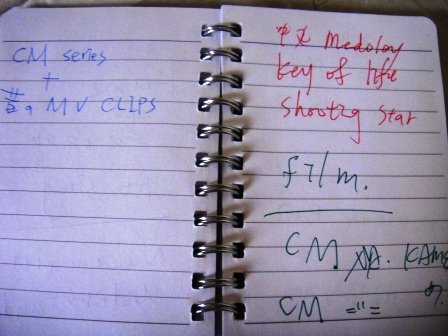 CM series
+
MV CLIPS
Medoloy
Key of life
Shooting Star
f7/m.
CM
CM =〃=